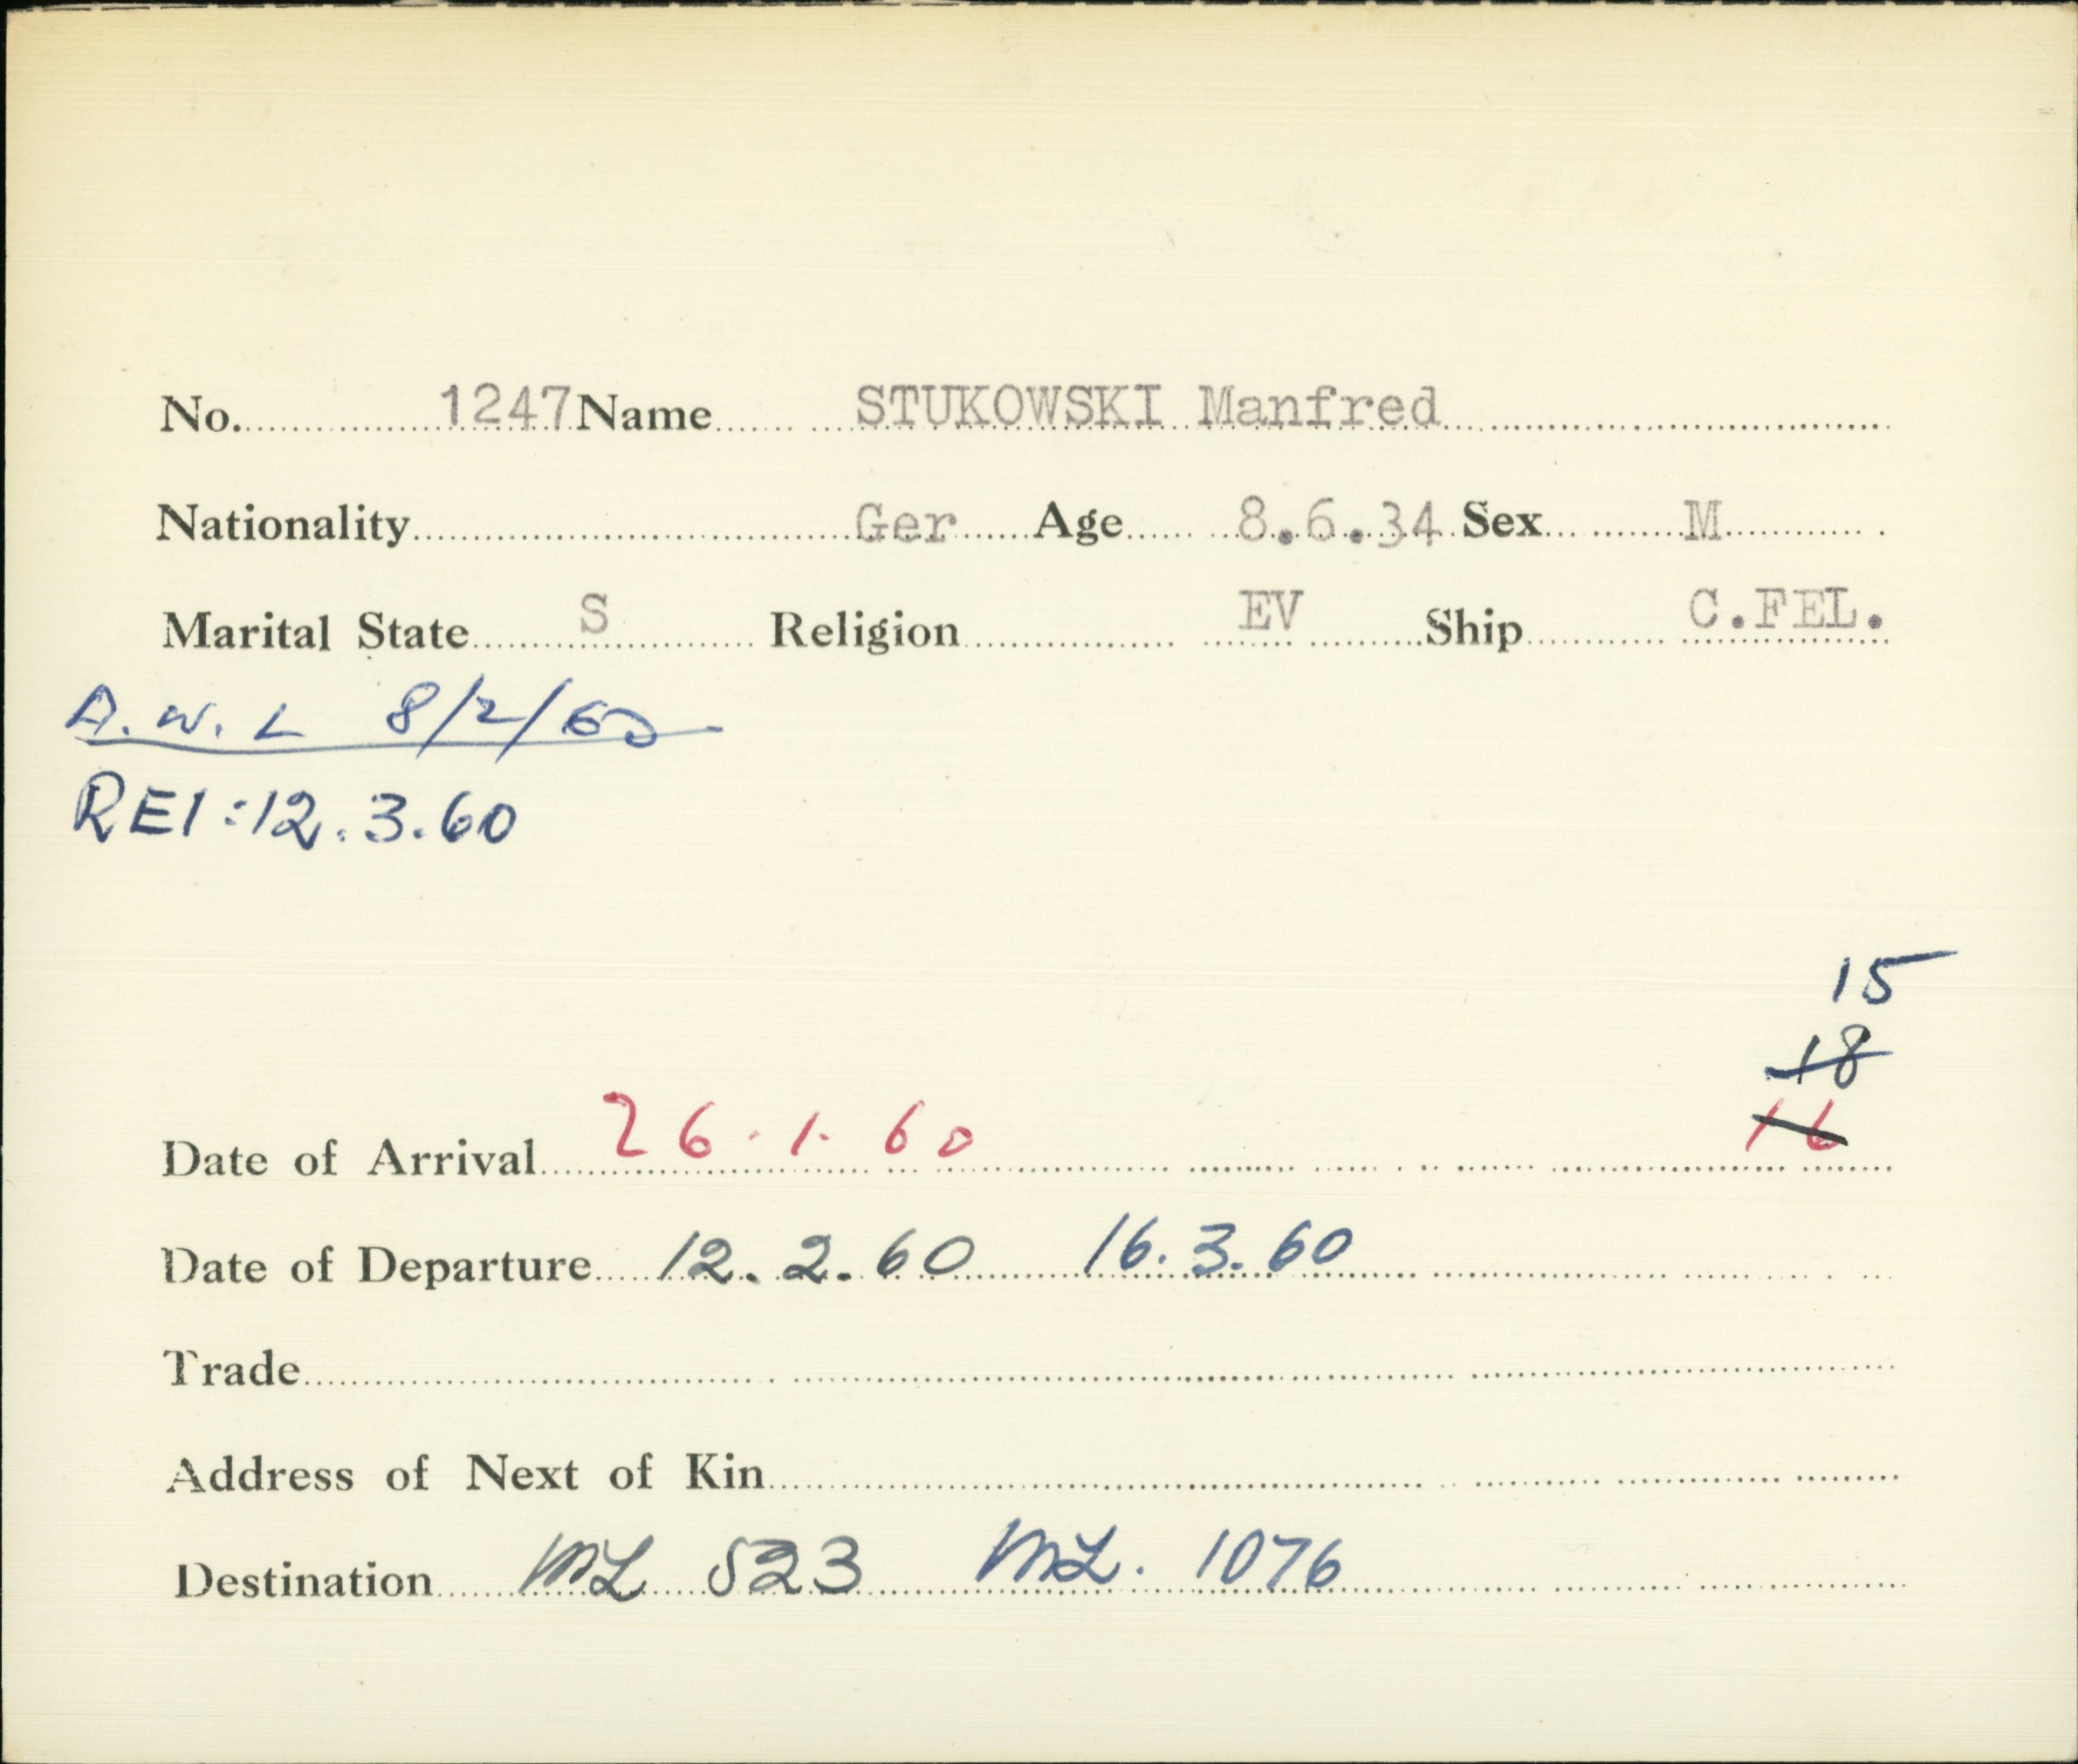 No. 1247 Name STUKOWSKI Manfred
Nationality Ger Age 8.6.34 Sex M
Marital State S Religion EV Ship C.FEL.
A.W.L 8/2/60
REI:12.3.60
15
18
16
Date of Arrival 26.1.60
Date of Departure 12.2.60 16.3.60
Trade
Address of Next of Kin
Destination ML 523 ML. 1076